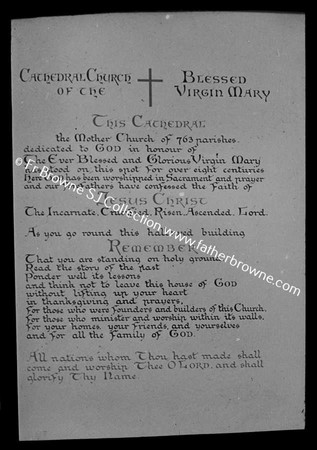 Cathedral Church Blessed
of the Virgin Mary
This Cathedral
the Mother Church of 763 parishes,
dedicated to GOD in honour of
The Ever Blessed and Glorious Virgin Mary
has stood on this spot for over eight centuries
Here GOD has been worshipped in Sacrament and prayer
and our forefathers have confessed the Faith of
Jesus Christ
The Incarnate, Crucified, Risen, Ascended, Lord.
As you go round this hallowed building
Remember
That you are standing on holy ground
Read the story of the past
Ponder well its lessons
and think not to leave this house of GOD
without lifting up your heart
in thanksgiving and prayers,
for those who were founders and builders of this Church,
for those who minister and worship within its walls,
for your homes, your friends, and yourselves
and for all the Family of GOD.
All nations whom Thou hast made, shall
come and worship Thee O LORD, and shall
glorify Thy Name
© Fr Browne SJ Collection, www.fatherbrowne.com